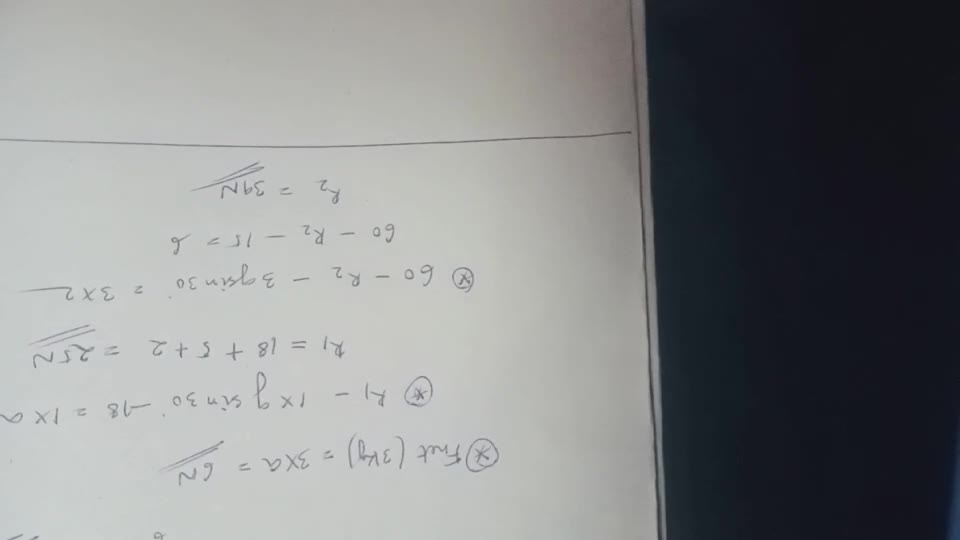 ⊛ Fnet (3kg) = 3×a = 6N
⊛ R₁ − 1×g sin30° − 18 = 1×a
R₁ = 18 + 5 + 2 = 25N
⊛ 60 − R₂ − 3g sin30° = 3×2
60 − R₂ − 15 = 6
R₂ = 39N